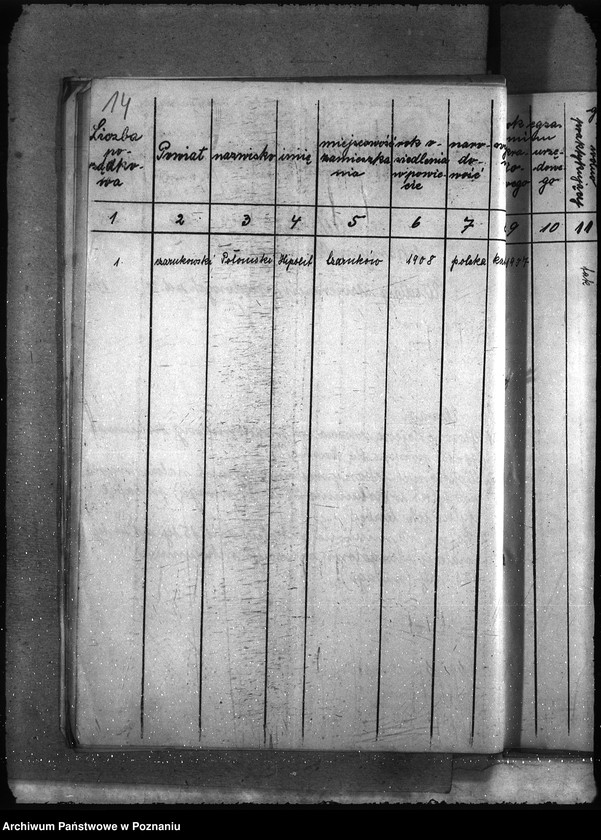 14
Liczba po-rządko-wa
Powiat
nazwisko
imię
miejscowość zamieszka-nia
rok o-siedlenia w powie-cie
naro-do-wość
urzę-dowe-go
praktykujący
1 2 3 4 5 6 7 9 10 11
1. czarnkowski Hipolit Czarnków 1908 polska tak
Archiwum Państwowe w Poznaniu